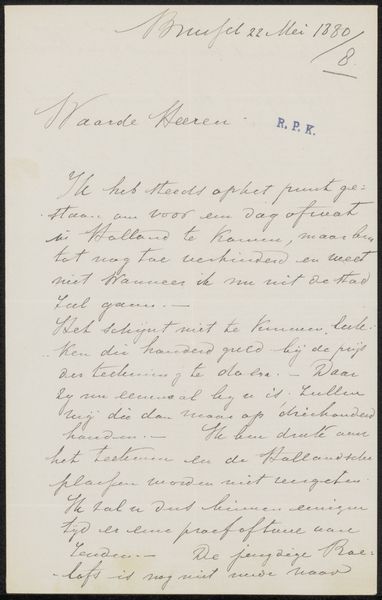 Brussel 22 Mei 1880
/8.
Waarde Heeren
R.P.K.
Ik heb steeds op het punt ge-
staan om voor een dag of wat
in Holland te komen, maar ben
tot nog toe verhinderd en weet
niet wanneer ik nu uit de stad
zal gaan. —
Het schijnt niet te kunnen luk-
ken die honderd guld bij de prijs
der teekening te doen. — Daar
zij nu eenmaal bij u is zullen
wij die dan maar op driehonderd
houden. — Ik ben druk aan
het teekenen en de Hollandsche
plaatsen worden niet vergeten.
Ik zal u dus binnen eenigen
tijd er eene proef of twee van
zenden. — De jeugdige Roe-
lofs is nog niet mede naar